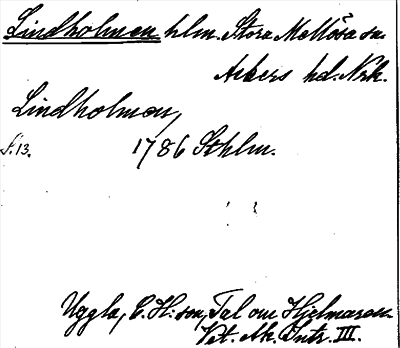 Lindholmen hlm. Stora Mellösa sn.
Askers hd. Nrk.
Lindholmen,
S. 13. 1786 Sthlm.
Uggla, C. H:son, Tal om Hjelmaren.
Vet. Ak. Intr. III.